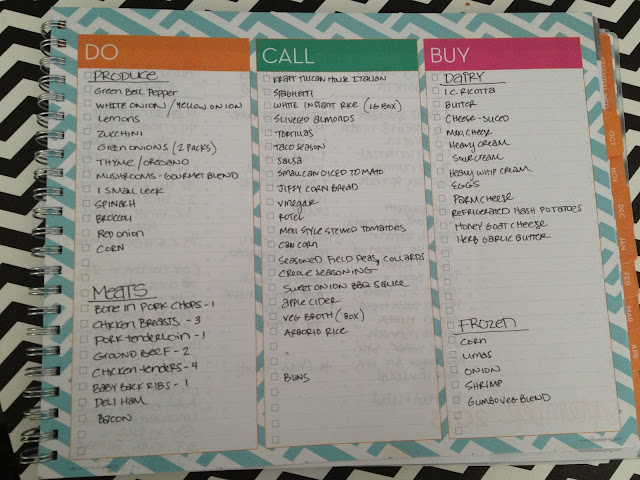 DO
PRODUCE
GREEN BELL PEPPER
WHITE ONION / YELLOW ONION
LEMONS
ZUCCHINI
GREEN ONIONS (2 PACKS)
THYME / OREGANO
MUSHROOMS - GOURMET BLEND
1 SMALL LEEK
SPINACH
BROCCOLI
RED ONION
CORN
MEATS
BONE IN PORK CHOPS - 1
CHICKEN BREASTS - 3
PORK TENDERLOIN - 1
GROUND BEEF - 2
CHICKEN TENDERS - 4
BABY BACK RIBS - 1
DELI HAM
BACON
CALL
KRAFT TUSCAN HOUSE ITALIAN
SPAGHETTI
WHITE INSTANT RICE (LG BOX)
SLIVERED ALMONDS
TORTILLAS
TACO SEASON
SALSA
SMALL CAN DICED TOMATO
JIFFY CORN BREAD
VINEGAR
ROTEL
MEXI STYLE STEWED TOMATOES
CAN CORN
SEASONED FIELD PEAS, COLLARDS
CREOLE SEASONING
SWEET ONION BBQ SAUCE
APPLE CIDER
VEG BROTH (BOX)
ARBORIO RICE
BUNS
BUY
DAIRY
1 C. RICOTTA
BUTTER
CHEESE - SLICED
MEXI CHEESE
HEAVY CREAM
SOUR CREAM
HEAVY WHIP CREAM
EGGS
PARM CHEESE
REFRIGERATED HASH POTATOES
HONEY GOAT CHEESE
HERB GARLIC BUTTER
FROZEN
CORN
LIMAS
ONION
SHRIMP
GUMBO VEG BLEND
OCT
NOV
DEC
JAN
FEB
MAR
APR